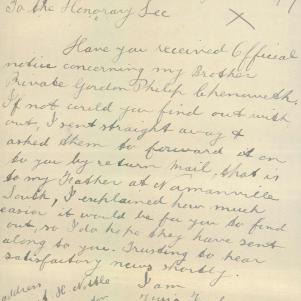 To the Honorary Sec
X
Have you received Official
notice concerning my Brother
Private Gordon Philip Chenoweth,
If not could you find out with
out, I sent straight away &
asked them to forward it on
to you by return mail, that is
to my Father at Yamanville
South, I explained how much
easier it would be for you to find
out, so I do hope they have sent
along to you. Trusting to hear
satisfactory news shortly.
address I am
H. Noble